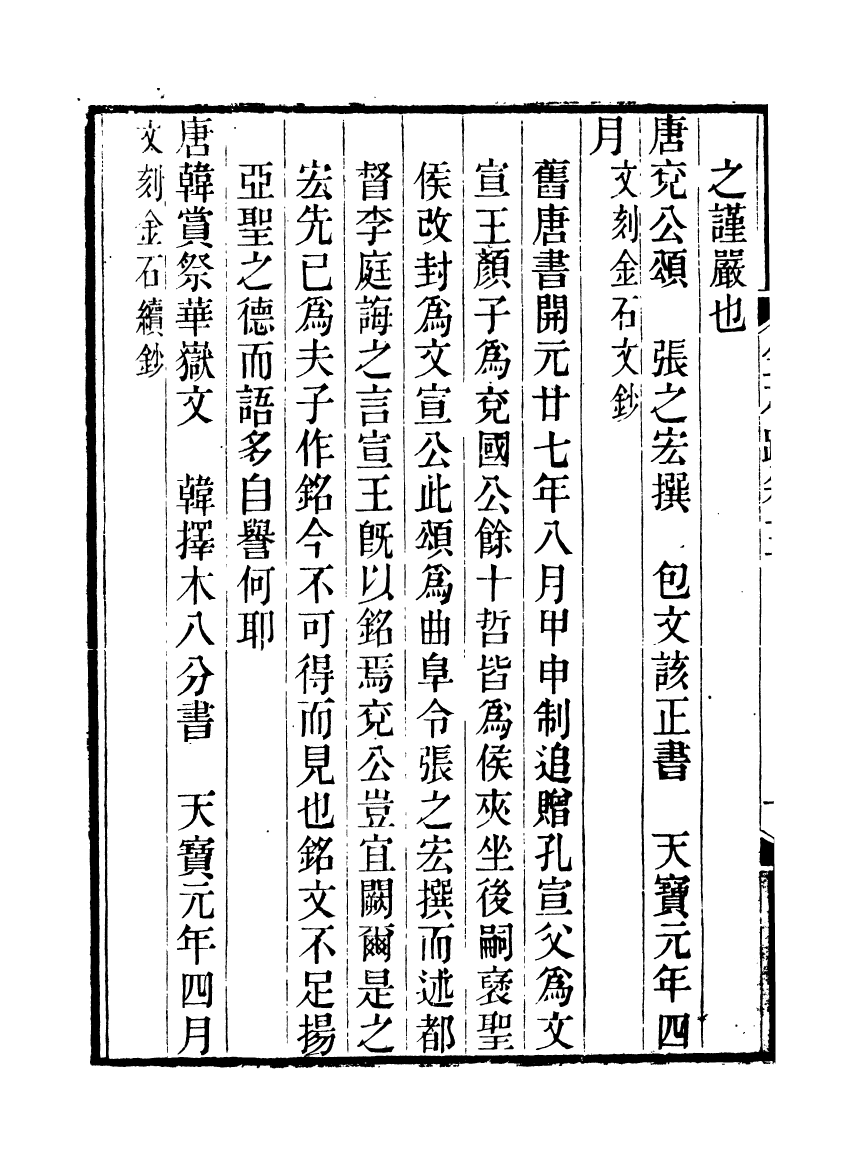 之謹嚴也
唐兗公頌　張之宏撰　包文該正書　天寶元年四
月文刻金石文鈔
舊唐書開元廿七年八月甲申制追贈孔宣父爲文
宣王顏子爲兗國公餘十哲皆爲侯夾坐後嗣襃聖
侯改封爲文宣公此頌爲曲阜令張之宏撰而述都
督李庭誨之言宣王旣以銘焉兗公豈宜闕爾是之
宏先已爲夫子作銘今不可得而見也銘文不足揚
亞聖之德而語多自譽何耶
唐韓賞祭華嶽文　韓擇木八分書　天寶元年四月
文刻金石續鈔